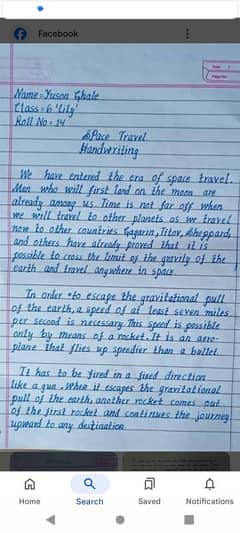 Facebook
Date
Page No
Name = Yuson Ghale
Class = 6 'Lily'
Roll No = 14
Space Travel
Handwriting
We have entered the era of space travel.
Men who will first land on the moon are
already among us. Time is not far off when
we will travel to other planets as we travel
now to other countries. Gagarin, Titov, Sheppard,
and others have already proved that it is
possible to cross the limit of the gravity of the
earth and travel anywhere in space.
In order to escape the gravitational pull
of the earth, a speed of at least seven miles
per second is necessary. This speed is possible
only by means of a rocket. It is an aero-
plane that flies up speedier than a bullet.
It has to be fired in a fixed direction
like a gun. When it escapes the gravitational
pull of the earth, another rocket comes out
of the first rocket and continues the journey
upward to any destination.
Home
Search
Saved
Notifications